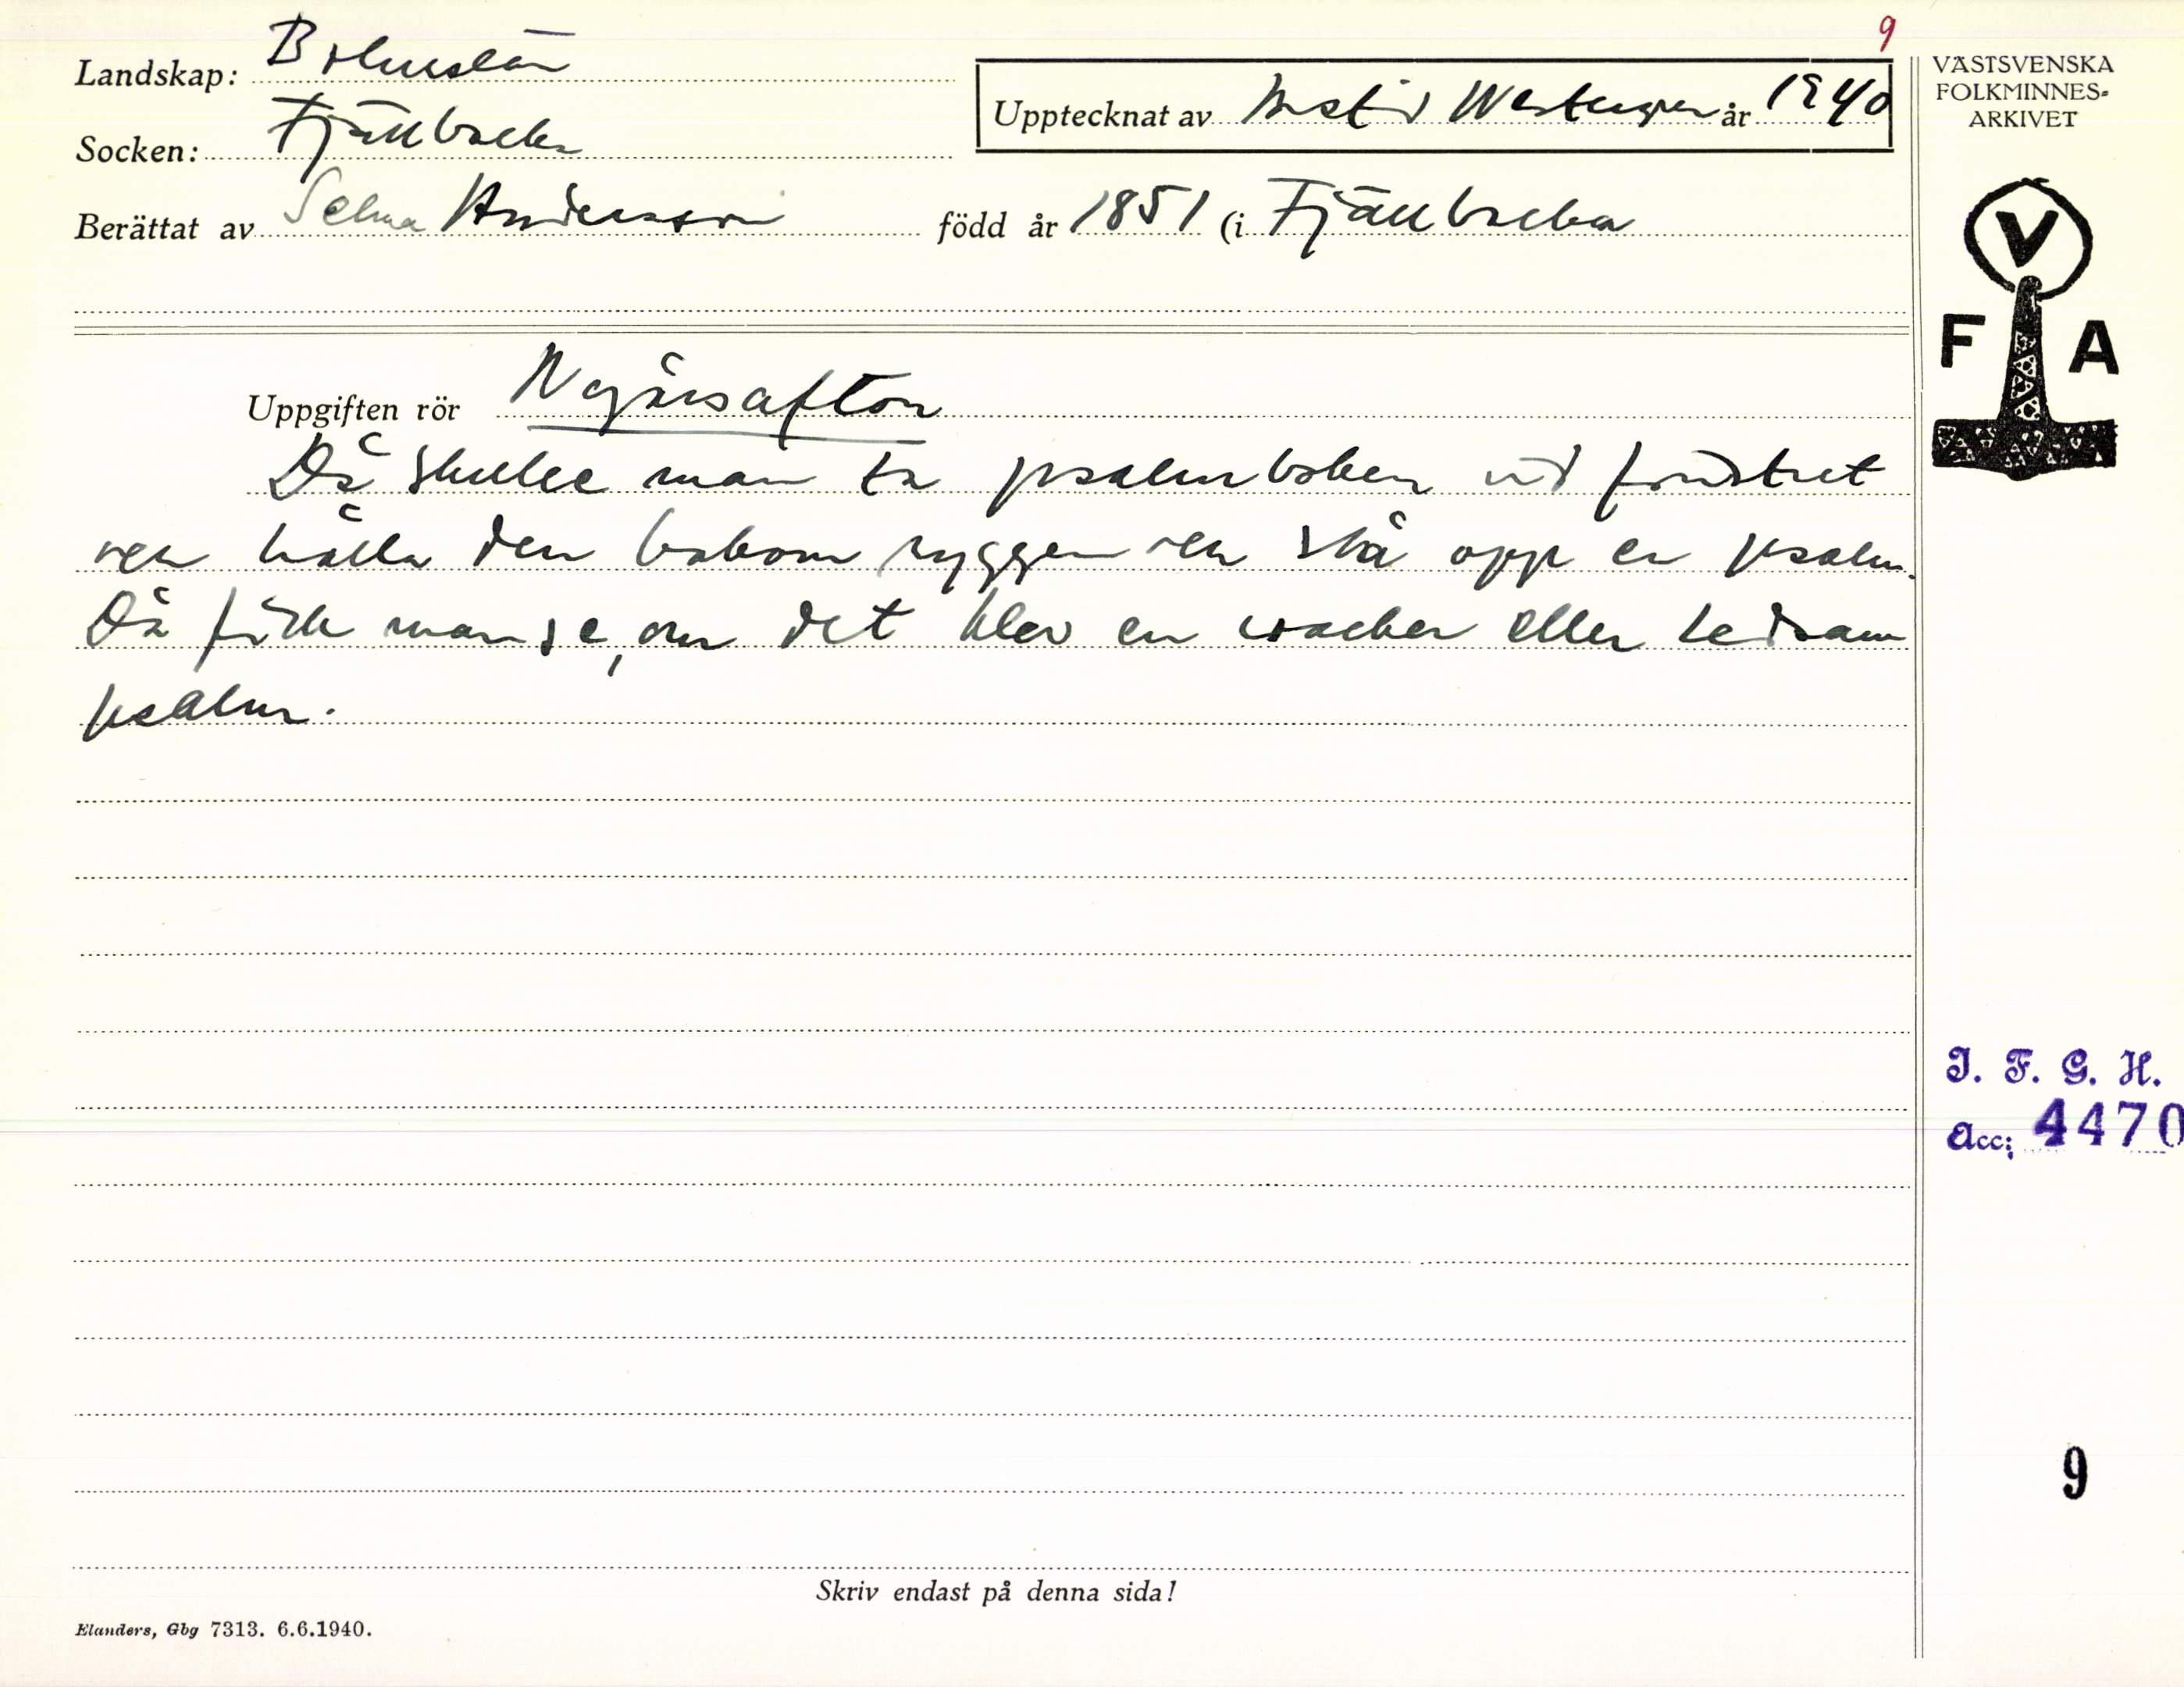 9
Landskap: Bohuslän
Socken: Fjällbacka
Upptecknat av Westergren år 1940
Berättat av Selma Andersson född år 1851 (i Fjällbacka
VÄSTSVENSKA
FOLKMINNES-
ARKIVET
V
F A
Uppgiften rör Nyårsafton
Då skulle man ta psalmboken vid fönstret
och hålla den bakom ryggen och slå opp en psalm.
Då fick man se, om det blev en vacker eller ledsam
psalm.
I. F. G. H.
Acc: 4470
9
Skriv endast på denna sida!
Elanders, Gbg 7313. 6.6.1940.